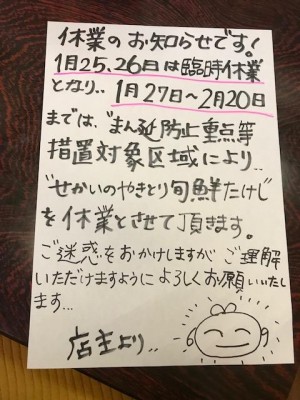 休業のお知らせです!
1月25,26日は臨時休業
となり.. 1月27日~2月20日
までは、"まん延防止重点等
措置対象区域により..
"せかいのやきとり旬鮮たけじ
を休業とさせて頂きます。
ご迷惑をおかけしますが ご理解
いただけますようによろしくお願いいたし
ます...
店主より..